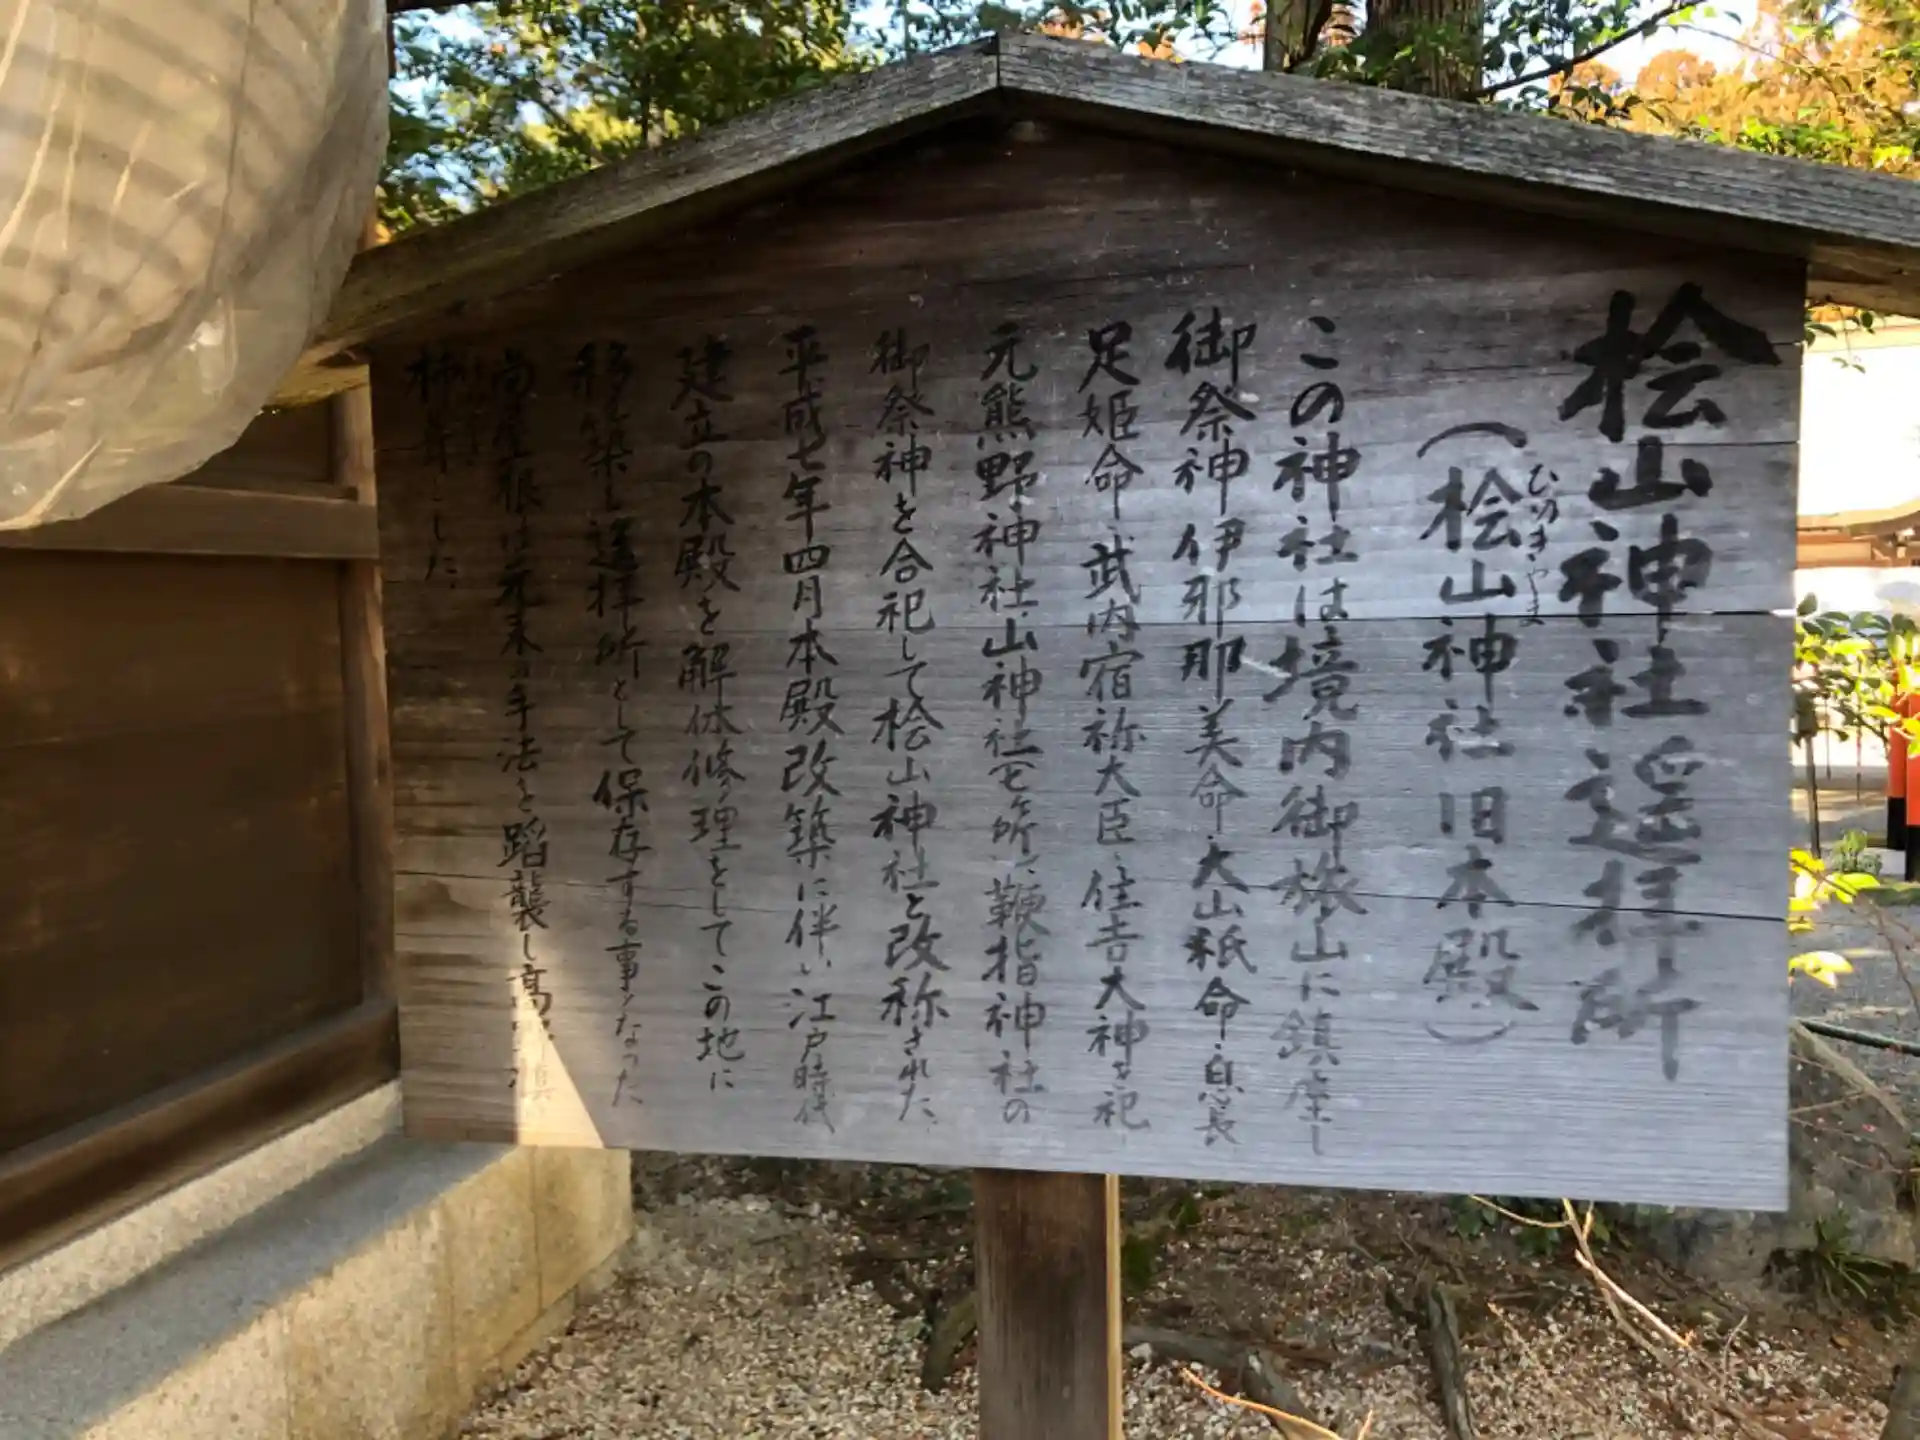 桧山神社遥拝所
（桧山神社旧本殿）
ひのきやま
この神社は境内御旅山に鎮座し
御祭神伊邪那美命・大山祇命・息長
足姫命・武内宿祢大臣・住吉大神を祀
元熊野神社・山神社（七ヶ所）・鞭指神社の
御祭神を合祀して桧山神社と改称された
平成七年四月本殿改築に伴い江戸時代
建立の本殿を解体修理をしてこの地に
移築し遥拝所として保存する事となった
尚屋根は元来の手法を踏襲し高
柿葺とした